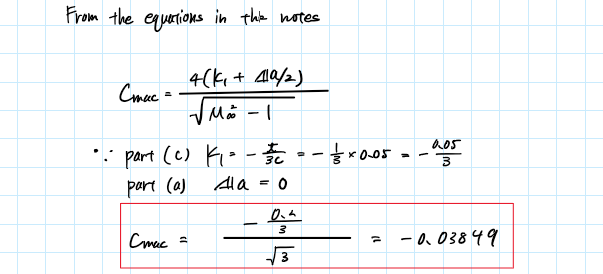 From the equations in the notes
Cmac = 4(K₁ + ΔA/2) / √(M∞² - 1)
∵ part (c) K₁ = - t/3c = - 1/3 × 0.05 = - 0.05/3
part (a) ΔA = 0
Cmac = (- 0.2/3) / √3 = - 0.03849